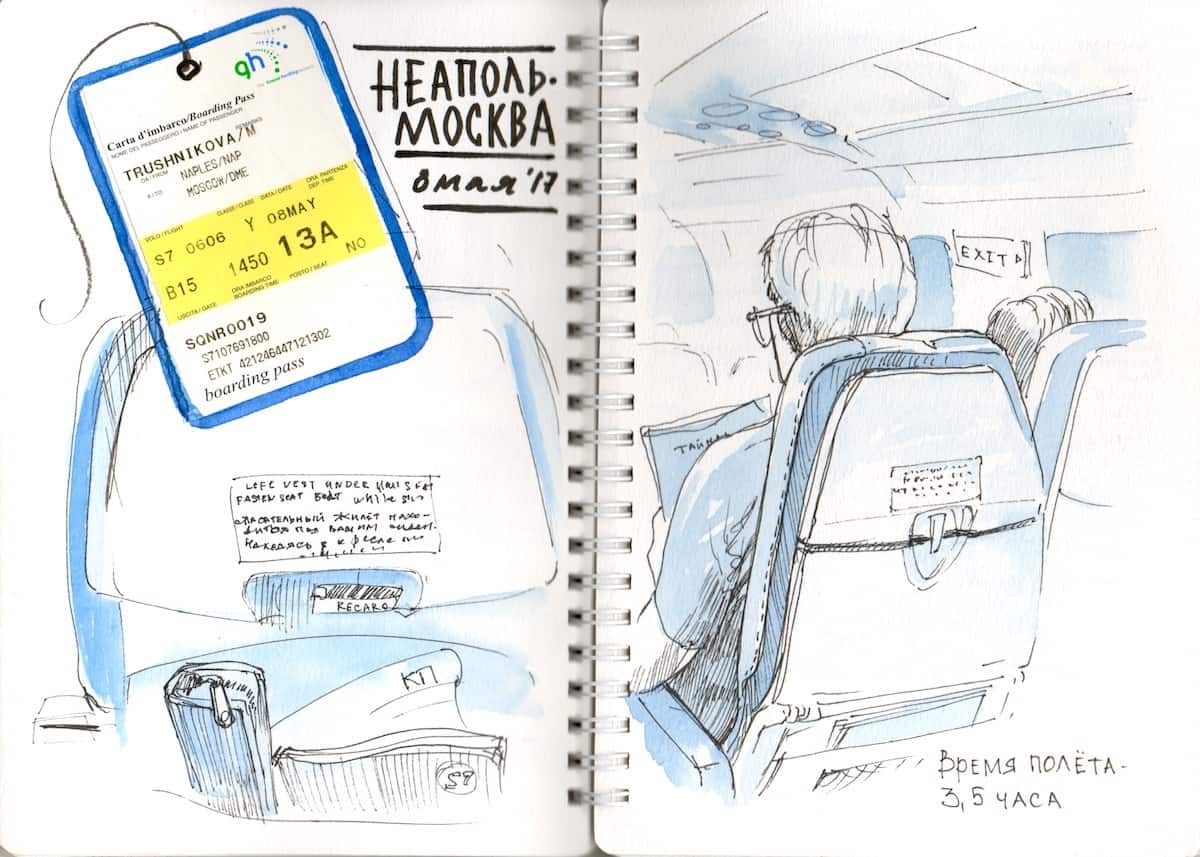 gh
Carta d'imbarco/Boarding Pass
NOME DEL PASSEGGERO / NAME OF PASSENGER
REMARKS
TRUSHNIKOVA/M
DA / FROM NAPLES/NAP
A / TO MOSCOW/DME
VOLO / FLIGHT CLASSE / CLASS DATA / DATE ORA PARTENZA
DEP TIME
S7 0606 Y 08MAY
B15 1450 13A NO
USCITA / GATE ORA IMBARCO POSTO / SEAT
BOARDING TIME
SQNR0019
S7107691800
ETKT 421246447121302
boarding pass
НЕАПОЛЬ-
МОСКВА
8 мая '17
LIFE VEST UNDER
FASTEN SEAT while
СПАСАТЕЛЬНЫЙ ЖИЛЕТ НАХО-
ДИТСЯ ПОД ВАШИМ
НАХОДЯСЬ В КРЕСЛЕ
RECARO
КТП
S7
EXIT
ТАЙН
ВРЕМЯ ПОЛЁТА-
3,5 ЧАСА